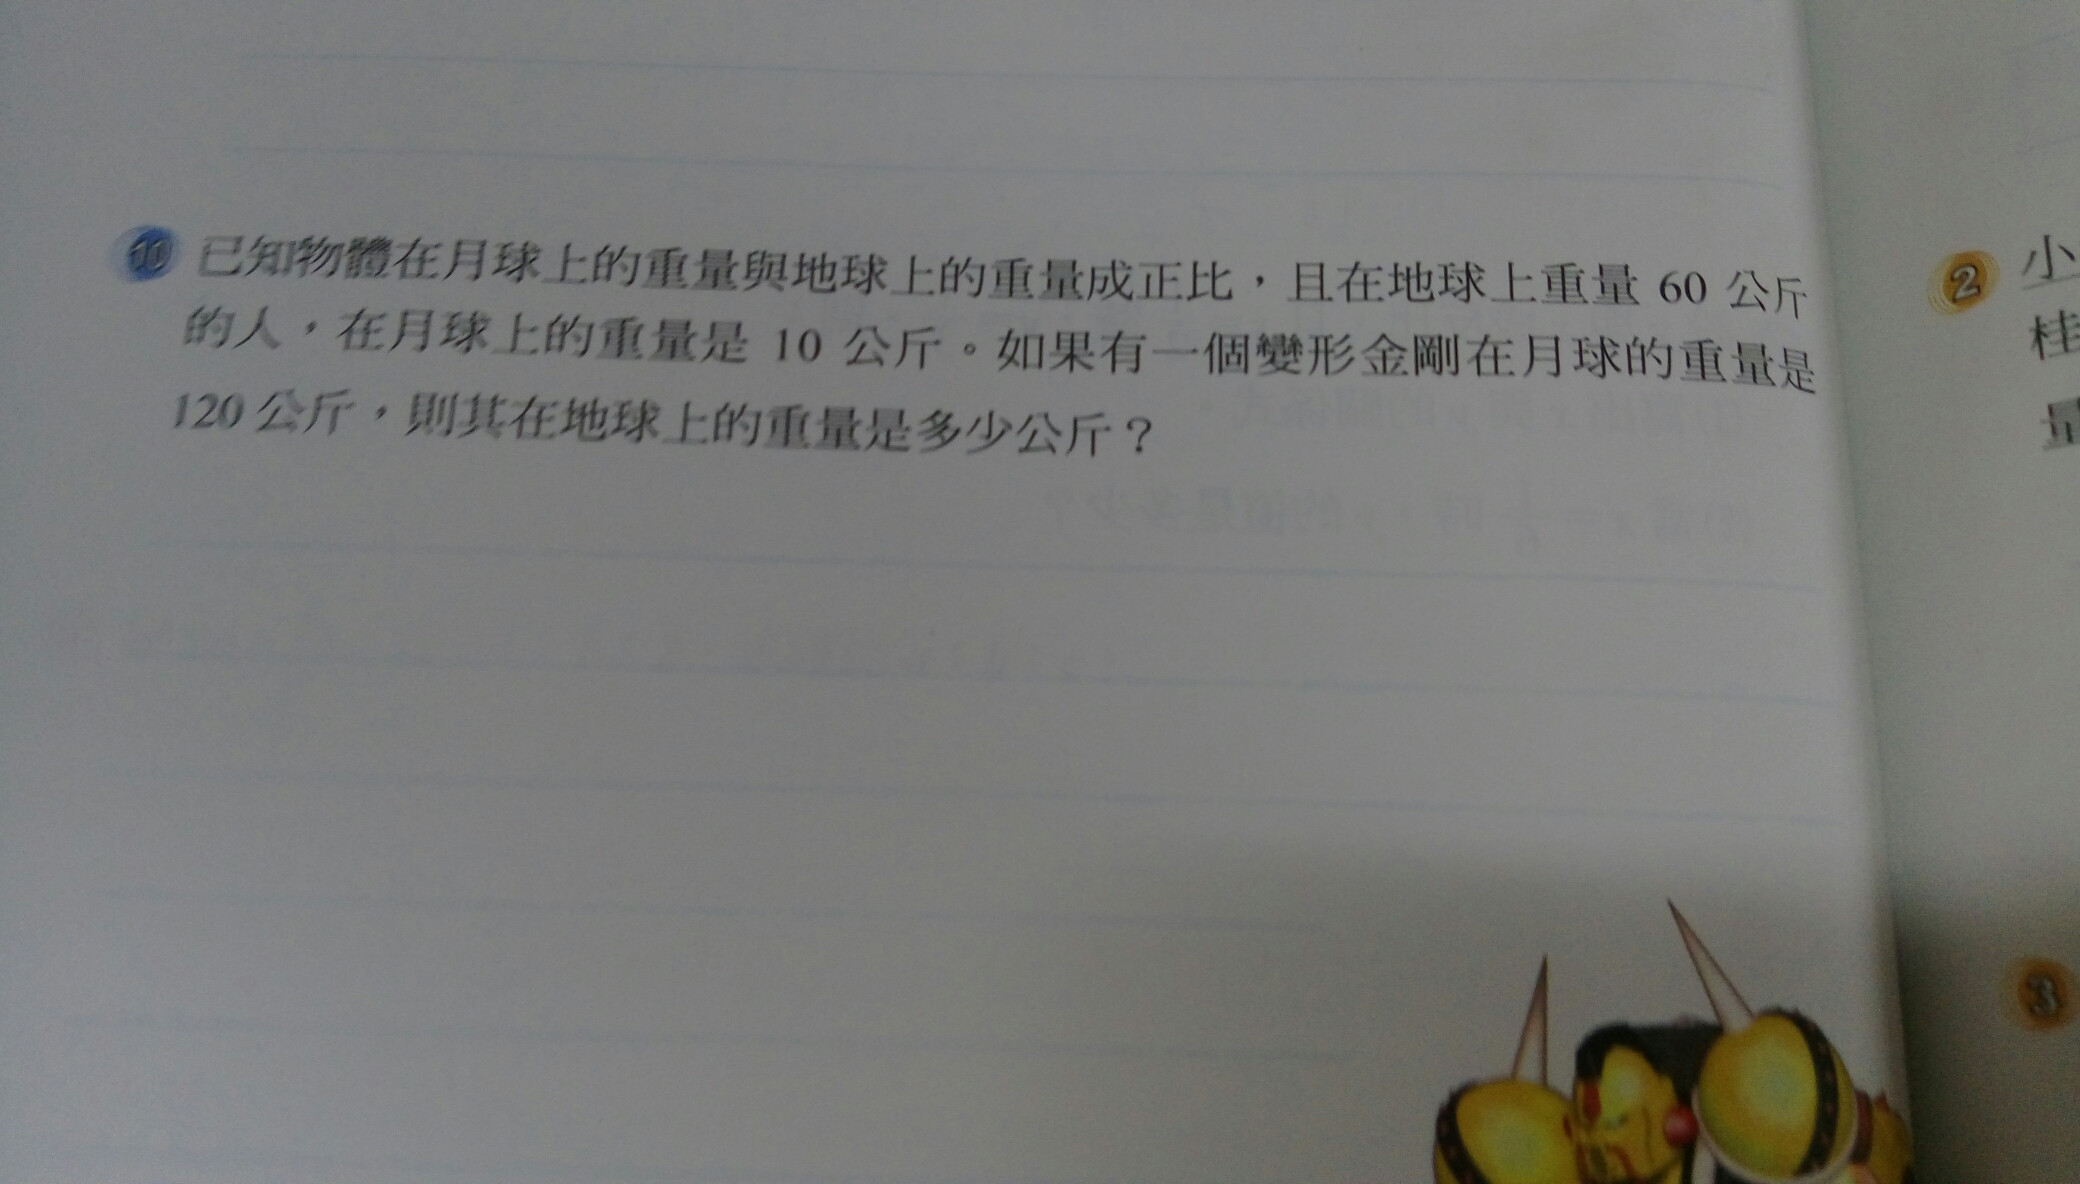 10 已知物體在月球上的重量與地球上的重量成正比，且在地球上重量 60 公斤
的人，在月球上的重量是 10 公斤。如果有一個變形金剛在月球的重量是
120 公斤，則其在地球上的重量是多少公斤？
2 小
桂
量
3